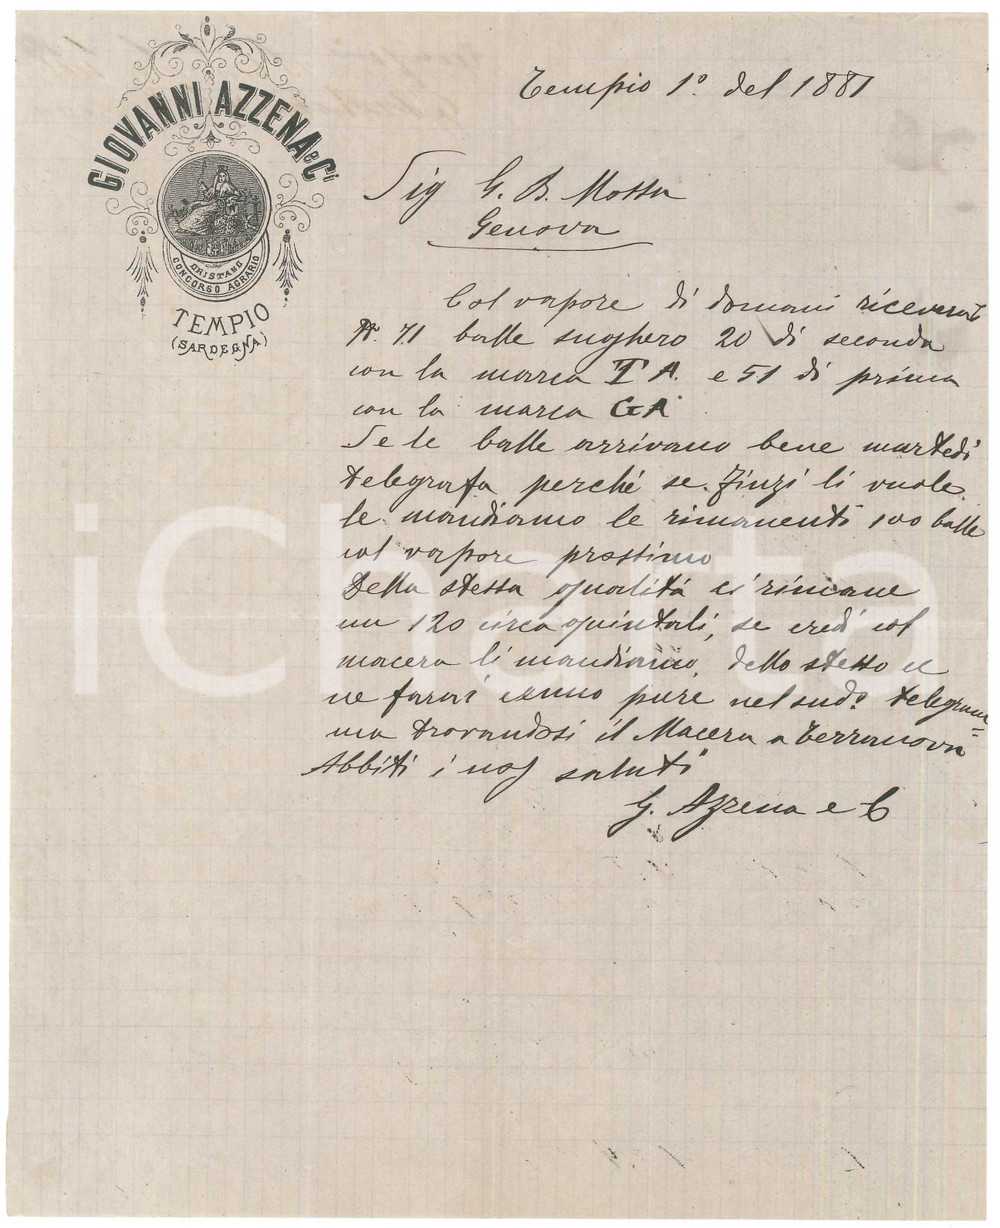 GIOVANNI AZZENA e Ci
ORISTANO
CONCORSO AGRARIO
TEMPIO
(SARDEGNA)
Tempio 1º del 1881
Sig G. B. Mossa
Genova
Col vapore di domani riceverete
Nº. 71 balle sughero 20 di seconda
con la marca T A. e 51 di prima
con la marca GA
Se le balle arrivano bene martedi
telegrafa perché se Finzi li vuole
le mandiamo le rimanenti 100 balle
col vapore prossimo
Della stessa qualità ci rimane
un 120 circa quintali, se credi col
macera li mandiamo, dello stesso
ne farai cenno pure nel sudº telegram=
ma trovandosi il Macera a Terranova
Abbiti i nos saluti
G. Azzena e C
iCharta